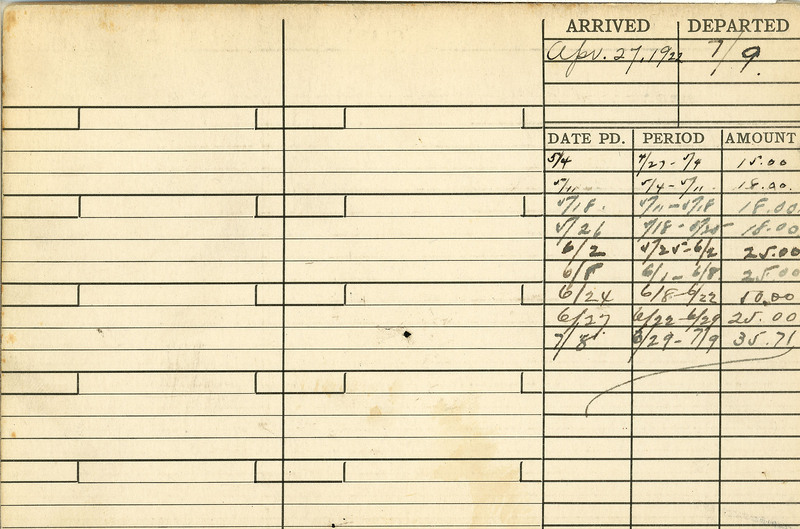 ARRIVED DEPARTED
Apr. 27, 1922 7/9.
DATE PD. PERIOD AMOUNT
5/4 4/27 - 5/4 15.00
5/11 5/4 - 5/11. 18.00.
5/18. 5/11 - 5/18 18.00
5/26 5/18 - 5/25 - 18.00
6/2 5/25 - 6/2 25.00
6/8 6/1 - 6/8. 25.00
6/24 6/8 - 6/22 50.00
6/27 6/22 - 6/29 25.00
7/8 6/29 - 7/9 35.71